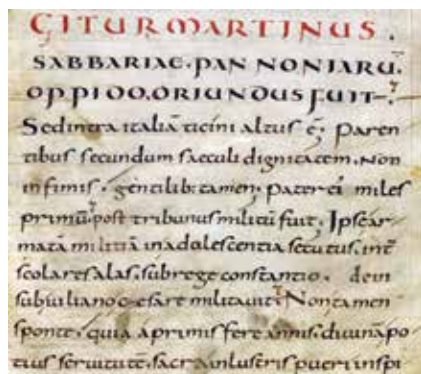 GITUR MARTINUS.
SABBARIAE. PANNONIARŪ
OPPIDO. ORIUNDUS FUIT
Sed intra italiā ticini altus ē. Paren
tibus secundum saeculi dignitatem. Non
infimis. gentilib: tamen. Pater ei miles
primū. post tribunus militū fuit. Ipse ar
matā militiā in adolescentia secutus. int̄
scolares alas. sub rege constantio. dein
sub iuliano cęsare militauit. Non tamen
sponte. quia a primis fere annis. diuinā po
tius seruitutē. sacra inlustris pueri inspi